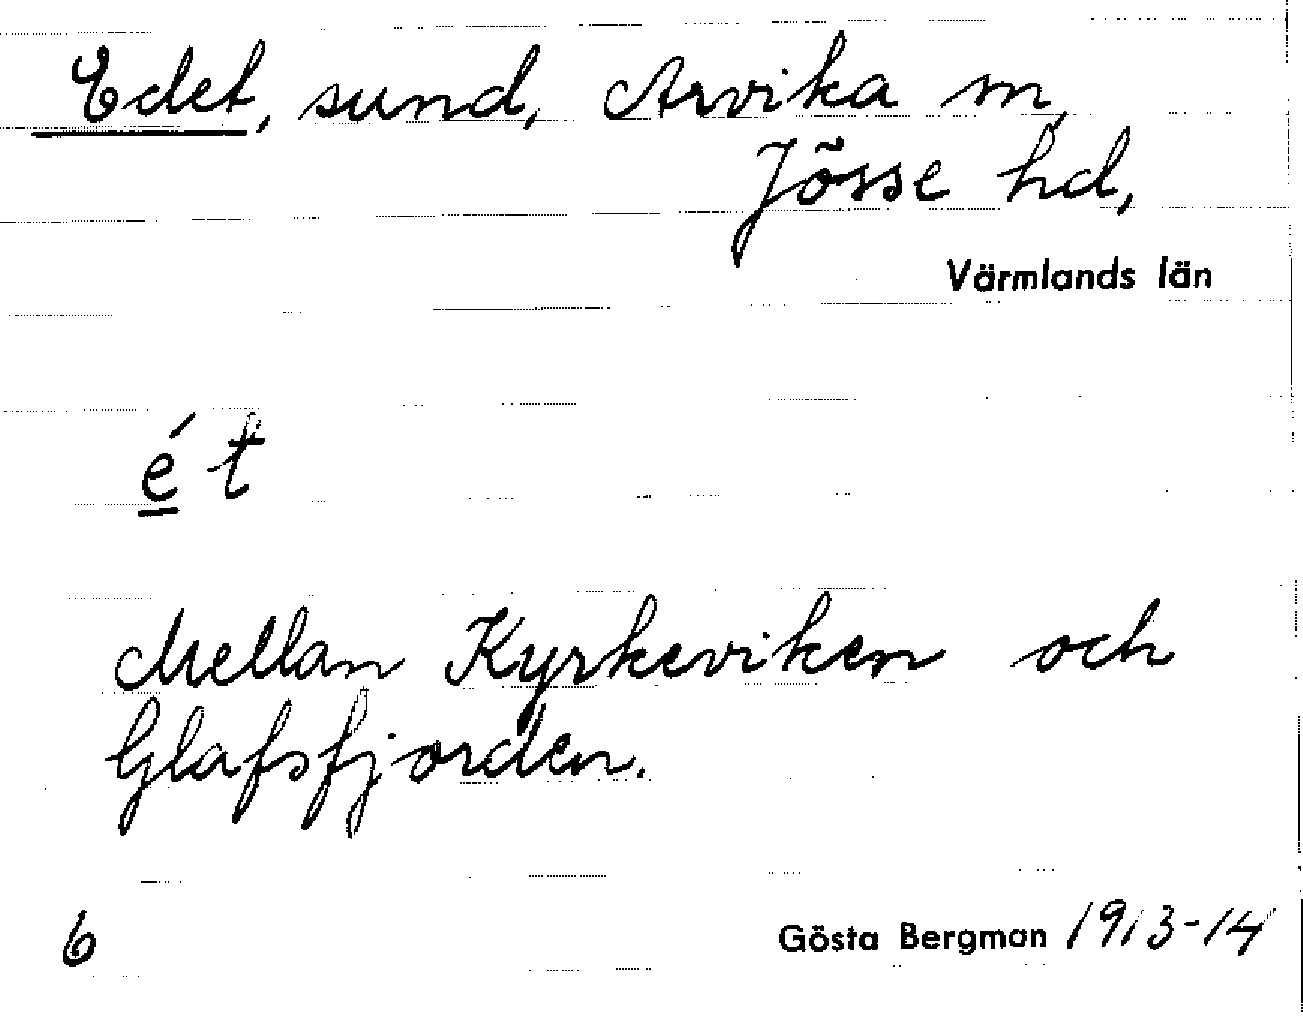 Edet, sund, Arvika m,
Jösse hd,
Värmlands län
é t
Mellan Kyrkeviken och
Glafsfjorden.
6 Gösta Bergman 1913-14